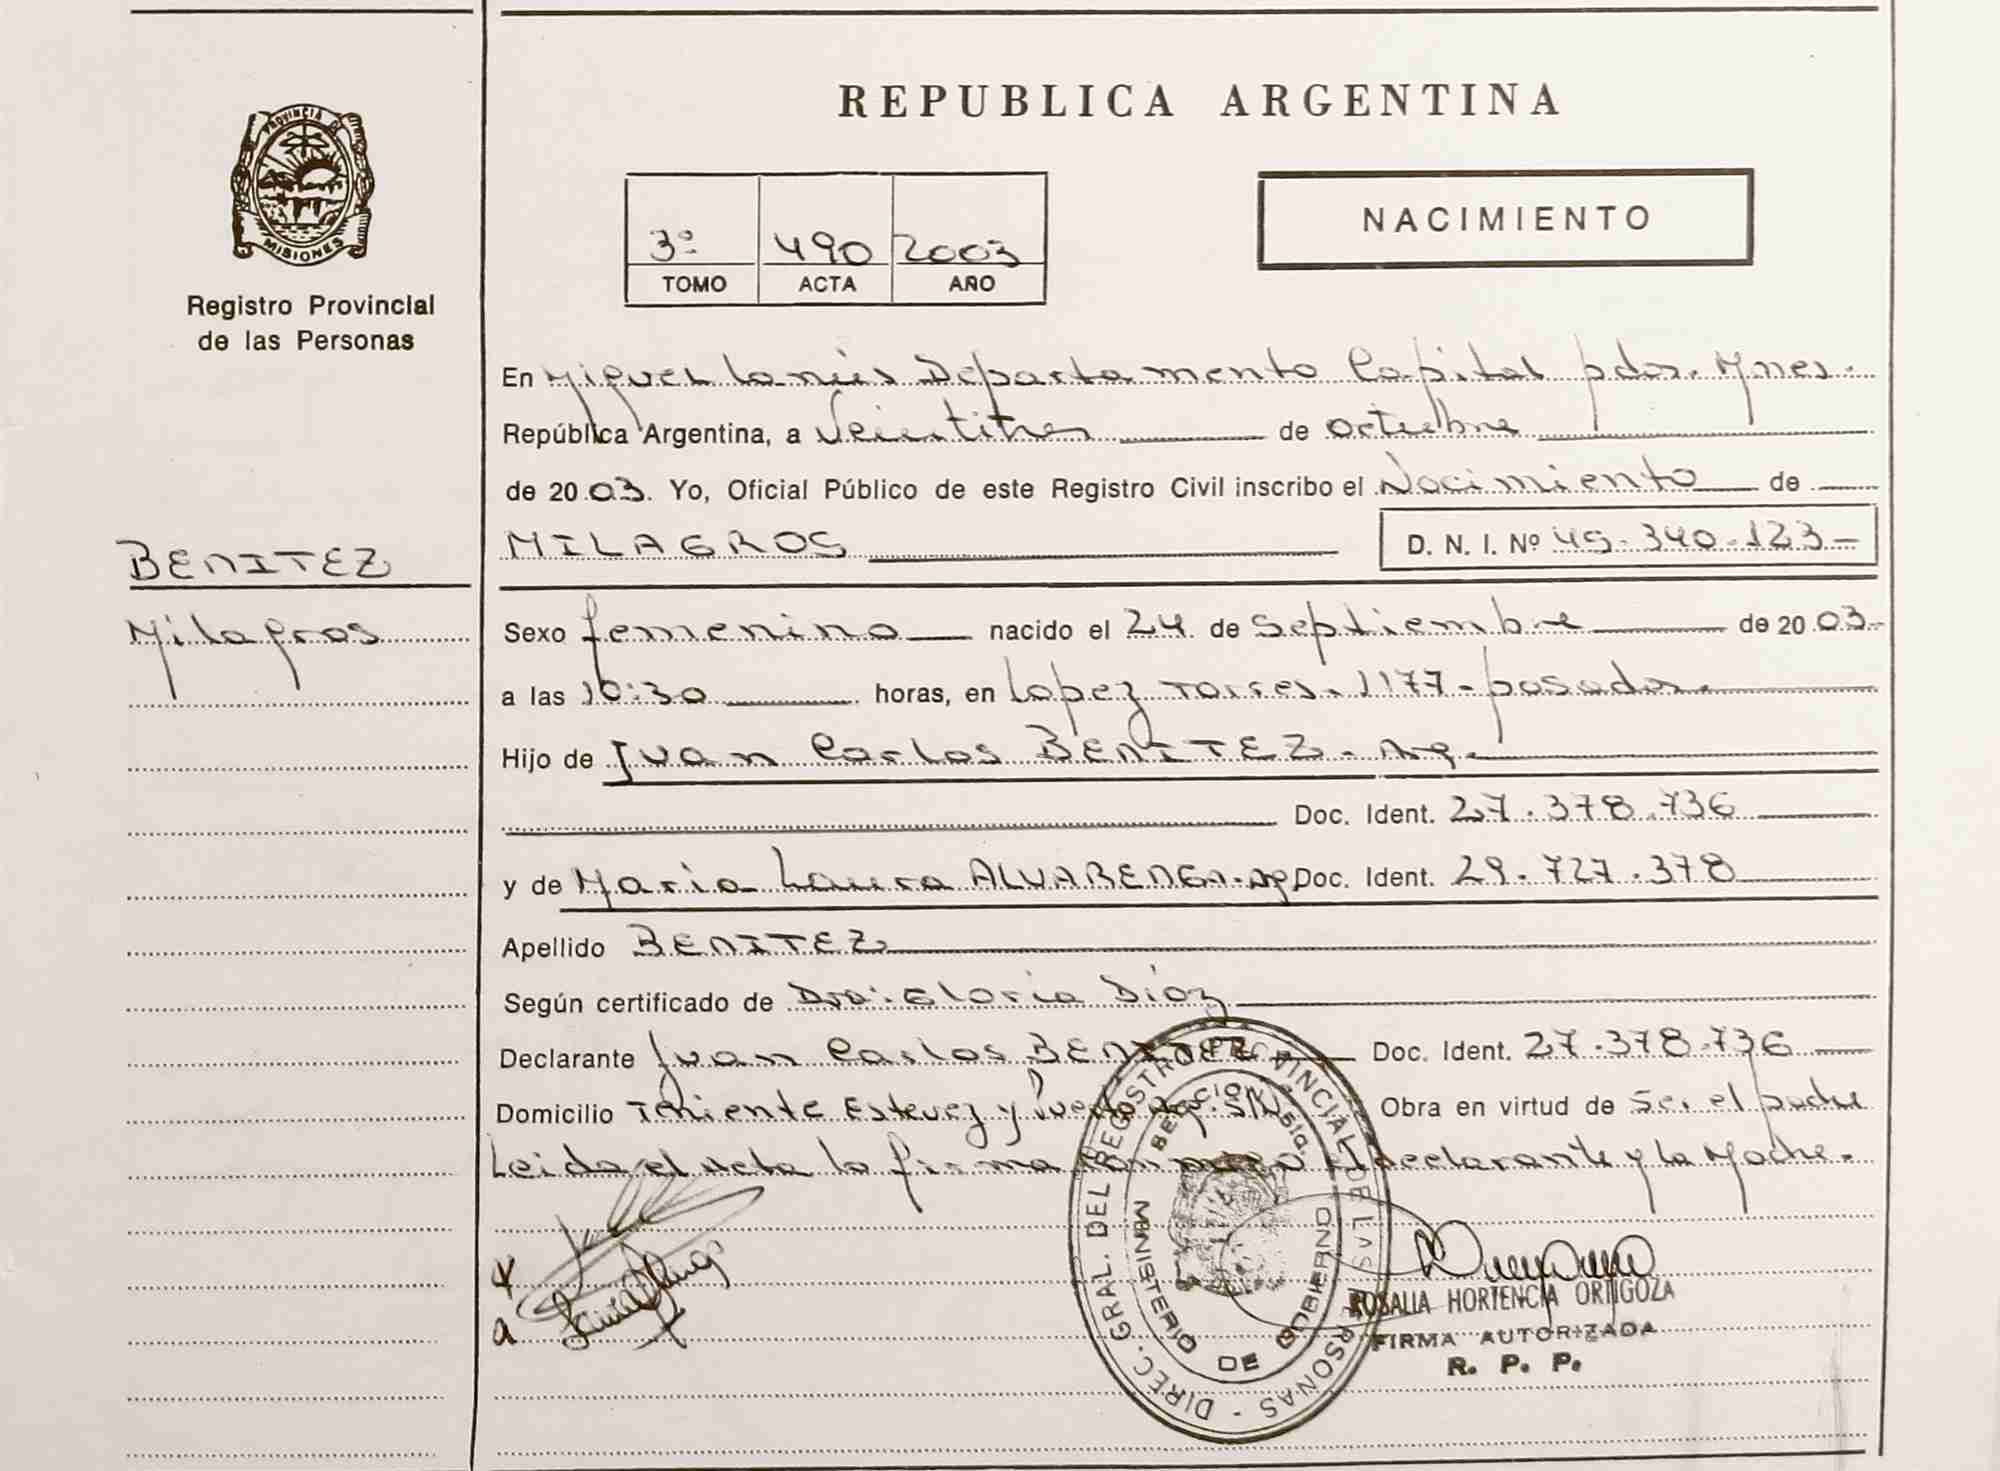 PROVINCIA DE
MISIONES
Registro Provincial
de las Personas
BENITEZ
Milagros
REPUBLICA ARGENTINA
3º 490 2003
TOMO ACTA AÑO
NACIMIENTO
En Miguel Lanús Departamento Capital pdas. Mnes.
República Argentina, a Veintitres de octubre
de 2003. Yo, Oficial Público de este Registro Civil inscribo el Nacimiento de
MILAGROS D. N. I. Nº 45.340.123
Sexo femenino nacido el 24 de Septiembre de 2003
a las 10:30 horas, en Lopez Torres. 1177 - posadas.
Hijo de Juan Carlos BENITEZ - Ag.
Doc. Ident. 27.378.736
y de Maria Laura ALVARENGA. Ag Doc. Ident. 29.727.378
Apellido BENITEZ
Según certificado de Dra: Gloria Díaz
Declarante Juan Carlos BENITEZ Doc. Ident. 27.378.736
Domicilio Teniente Estevez y Puerto Arg. S/N Obra en virtud de Ser el padre
Leida el Acta la firma conmigo el declarante y la Madre.
DIREC. GRAL. DEL REGISTRO PROVINCIAL DE LAS PERSONAS -
MINISTERIO DE GOBIERNO
ROSALIA HORTENCIA ORTIGOZA
FIRMA AUTORIZADA
R. P. P.